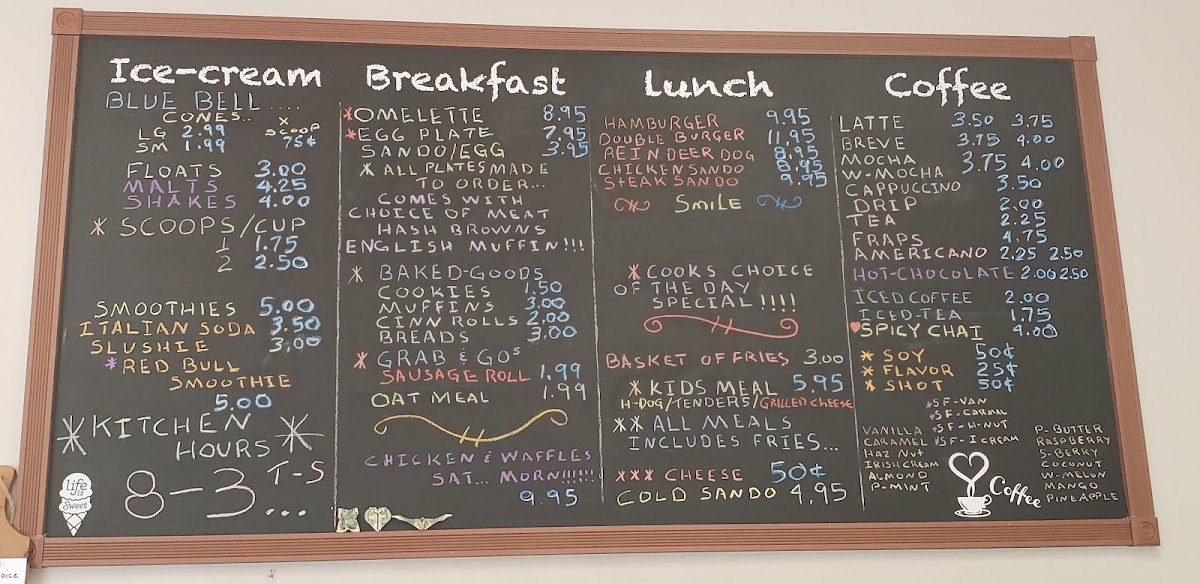 Ice-cream
BLUE BELL.....
CONES.. x
LG 2.99 SCOOP
SM 1.99 75¢
FLOATS 3.00
MALTS 4.25
SHAKES 4.00
* SCOOPS/CUP
1 1.75
2 2.50
SMOOTHIES 5.00
ITALIAN SODA 3.50
SLUSHIE 3.00
* RED BULL
SMOOTHIE
5.00
* KITCHEN *
HOURS
8-3 T-S
...
life
is
Sweet
Breakfast
* OMELETTE 8.95
* EGG PLATE 7.95
SANDO/EGG 3.95
* ALL PLATES MADE
TO ORDER...
COMES WITH
CHOICE OF MEAT
HASH BROWNS
ENGLISH MUFFIN!!!
* BAKED-GOODS
COOKIES 1.50
MUFFINS 3.00
CINN ROLLS 2.00
BREADS 3.00
* GRAB & GOS
SAUSAGE ROLL 1.99
OAT MEAL 1.99
CHICKEN & WAFFLES
SAT... MORN!!!!!!
9.95
Lunch
HAMBURGER 9.95
DOUBLE BURGER 11.95
REINDEER DOG 8.95
CHICKEN SANDO 8.95
STEAK SANDO 9.95
SMILE
* COOKS CHOICE
OF THE DAY
SPECIAL!!!!
BASKET OF FRIES 3.00
* KIDS MEAL 5.95
H-DOG/TENDERS/GRILLED CHEESE
** ALL MEALS
INCLUDES FRIES...
*** CHEESE 50¢
COLD SANDO 4.95
Coffee
LATTE 3.50 3.75
BREVE 3.75 4.00
MOCHA
W-MOCHA 3.75 4.00
CAPPUCCINO 3.50
DRIP 2.00
TEA 2.25
FRAPS 4.75
AMERICANO 2.25 2.50
HOT-CHOCOLATE 2.00 2.50
ICED COFFEE 2.00
ICED-TEA 1.75
SPICY CHAI 4.00
* SOY 50¢
* FLAVOR 25¢
* SHOT 50¢
*SF-VAN
*SF-CARMAL
*SF-H-NUT
*SF-ICREAM
VANILLA
CARAMEL
HAZ NUT
IRISH CREAM
ALMOND
P-MINT
P-BUTTER
RASPBERRY
S-BERRY
COCONUT
W-MELON
MANGO
PINEAPPLE
Coffee